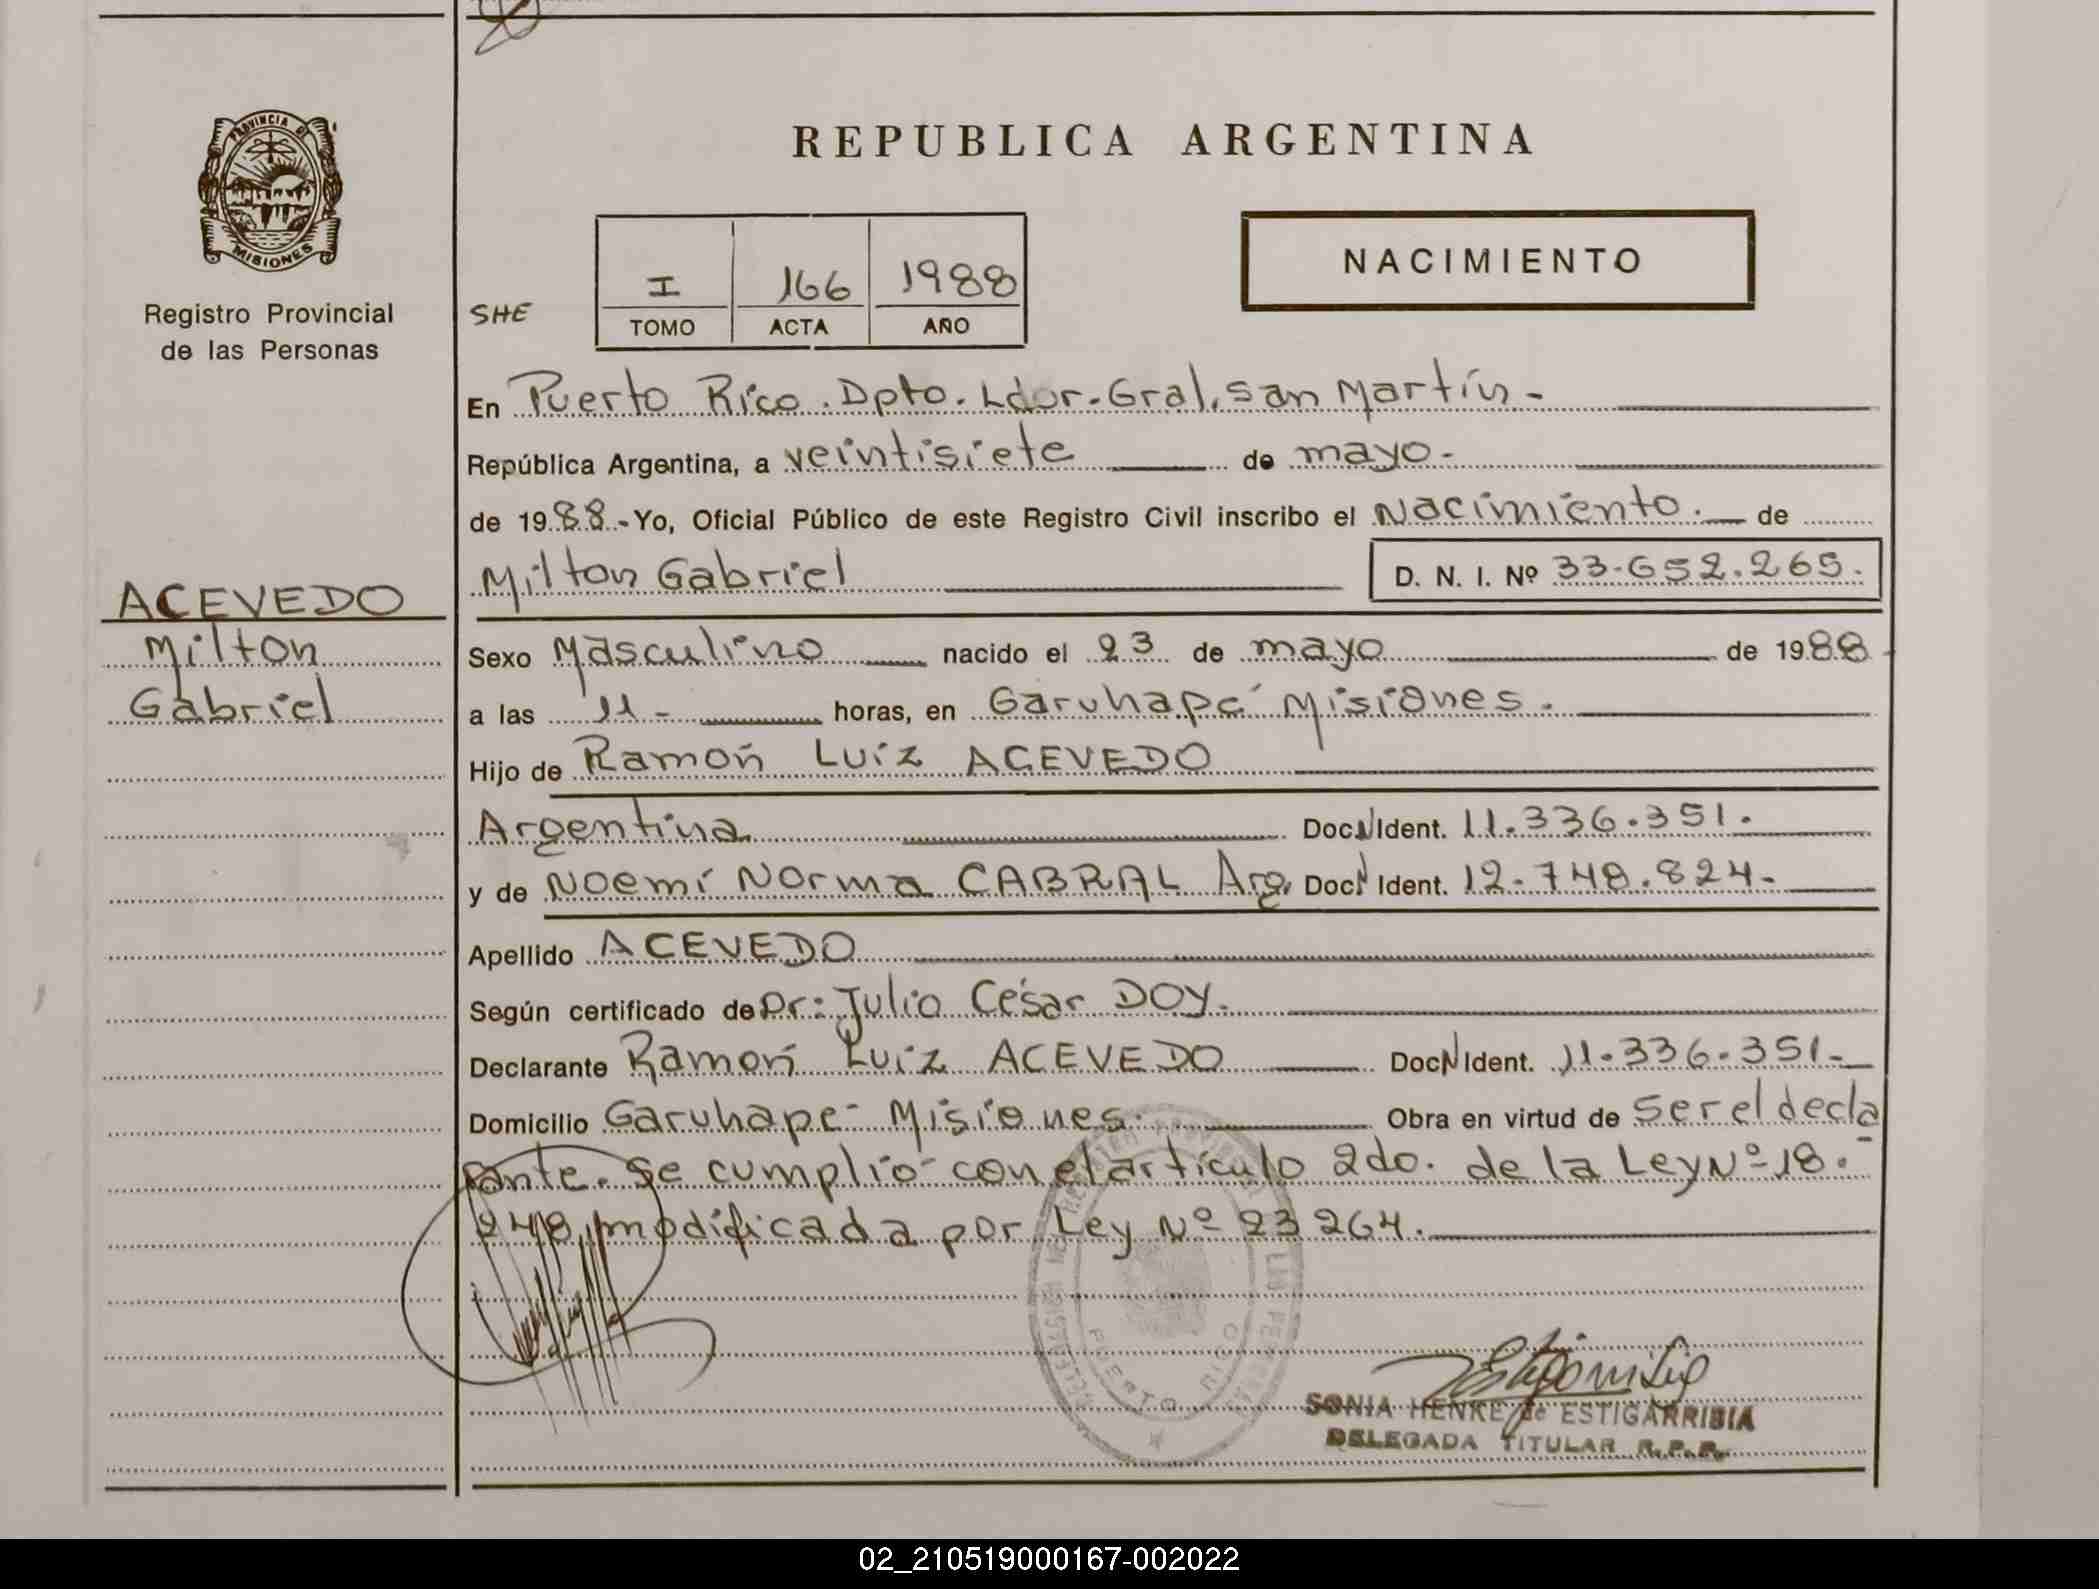 PROVINCIA DE
MISIONES
Registro Provincial
de las Personas
REPUBLICA ARGENTINA
NACIMIENTO
SHE
I 166 1988
TOMO ACTA AÑO
En Puerto Rico. Dpto. Ldor. Gral. San Martín -
República Argentina, a veintisiete de mayo -
de 1988 - Yo, Oficial Público de este Registro Civil inscribo el Nacimiento. de
Milton Gabriel D. N. I. Nº 33.652.265.
ACEVEDO
Milton
Gabriel
Sexo Masculino nacido el 23 de mayo de 1988
a las 11 - horas, en Garuhapé Misiones.
Hijo de Ramón Luíz ACEVEDO
Argentina Doc N Ident. 11.336.351.
y de Noemí Norma CABRAL Arg. Doc N Ident. 12.748.824.
Apellido ACEVEDO
Según certificado de Dr: Julio César DOY.
Declarante Ramón Luíz ACEVEDO Doc N Ident. 11.336.351.
Domicilio Garuhapé Misiones. Obra en virtud de ser el decla
rante. Se cumplió con el artículo 2do. de la Ley Nº 18.
248, modificada por Ley Nº 23264.
PUERTO RICO
SONIA HENKE de ESTIGARRIBIA
DELEGADA TITULAR R.P.P.
02_210519000167-002022